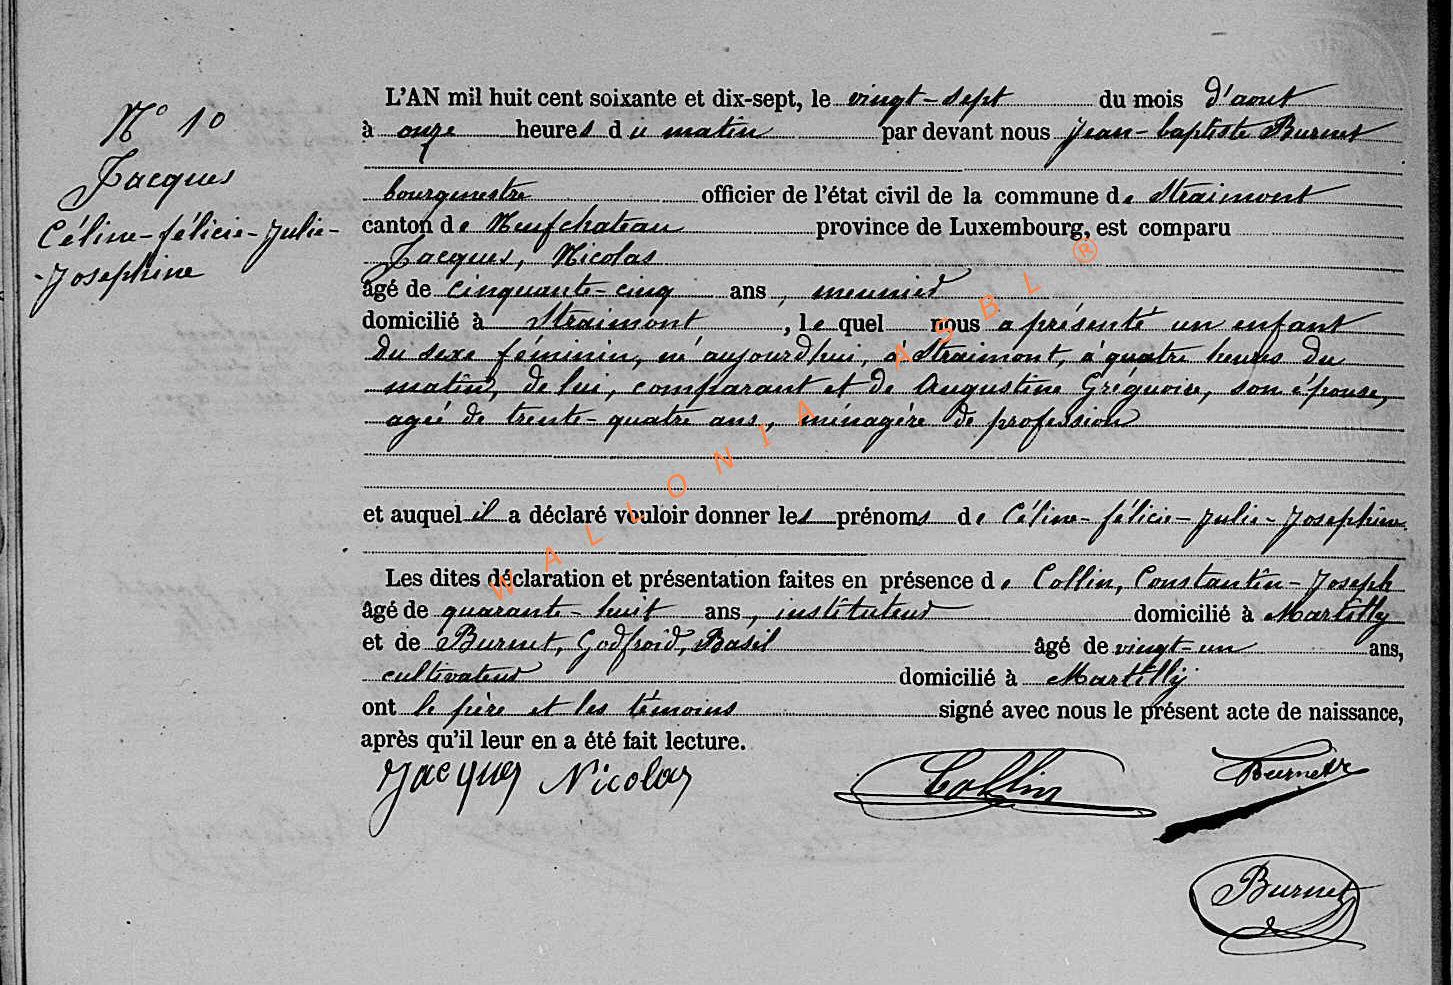 N° 10
Jacques
Céline-félicie-Julie-
-Josephine
L'AN mil huit cent soixante et dix-sept, le vingt-sept du mois d'aout
à onze heures du matin par devant nous Jean-baptiste Burnet
bourgmestre officier de l'état civil de la commune de Straimont
canton de Neufchateau province de Luxembourg, est comparu
Jacques, Nicolas
âgé de cinquante-cinq ans, meunier
domicilié à Straimont, lequel nous a présenté un enfant
du sexe féminin, né aujourd'hui, à Straimont, à quatre heures du
matin, de lui, comparant et de Augustine Grégoire, son épouse,
agée de trente-quatre ans, ménagère de profession
et auquel il a déclaré vouloir donner les prénoms de Céline-félicie-Julie-Josephine
Les dites déclaration et présentation faites en présence de Collin, Constantin-Joseph
âgé de quarante-huit ans, instituteur domicilié à Martilly
et de Burnet, Godfroid, Basil âgé de vingt-un ans,
cultivateur domicilié à Martilly
ont le père et les témoins signé avec nous le présent acte de naissance,
après qu'il leur en a été fait lecture.
Jacques Nicolas Collin Burnet
Burnet
WALLONIA ASBL ®